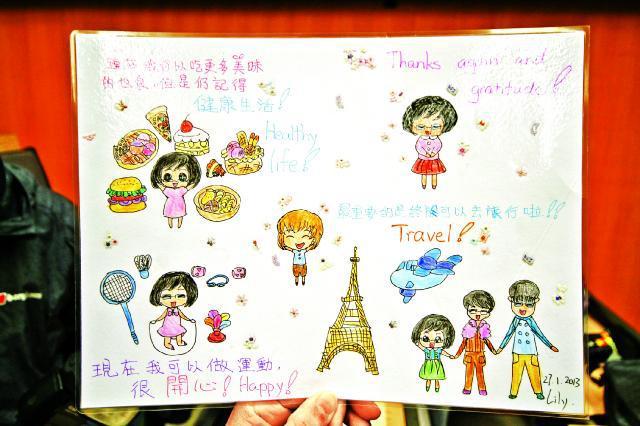 現在我可以吃更多美味
的食,但是仍記得
健康生活!
Healthy
life!
Thanks again and
gratitude!
最重要的是終於可以去旅行啦!!
Travel!
現在我可以做運動,
很開心! Happy!
27.1.2013
Lily.